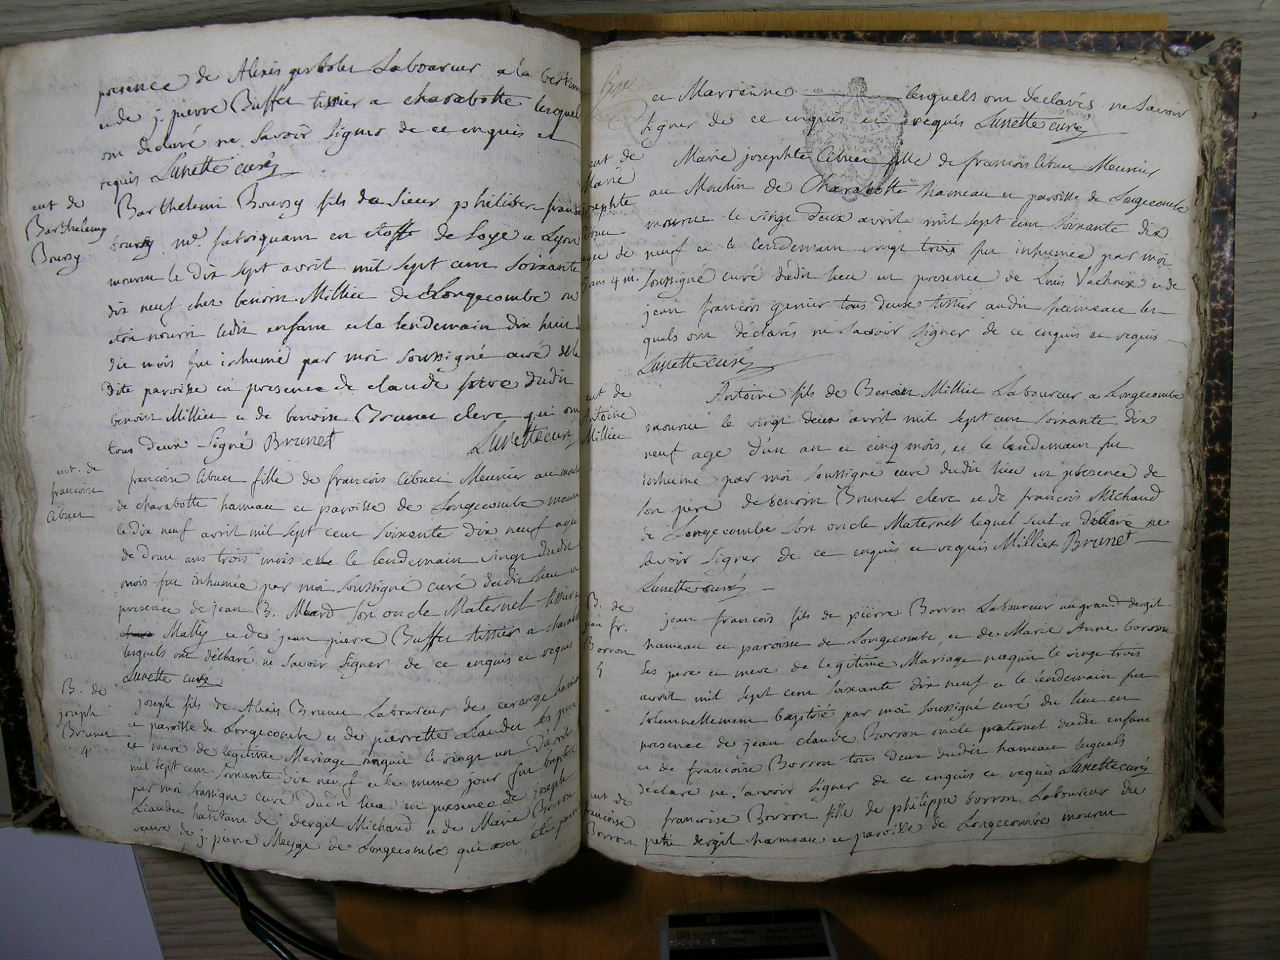 presence de Alexis Laboureur a la
et de j. pierre Buffet tissier a charabotte lesquels
ont déclaré ne savoir signer de ce enquis et
requis Lunette curé
ent de
Barthelemy
Bouvy
Barthelemi Bouvy fils du sieur philibert
md. fabriquant en etoffe de soye a Lyon
mourut le dix sept avril mil sept cent soixante
dix neuf chez benoit Milliet de Longecombe ou
etoit nourri ledit enfant et le lendemain dix huit
dit mois fut inhumé par moi soussigné curé de la
dite paroisse en presence de claude dudit
benoit Milliet et de benoit Brunet clerc qui ont
tous deux signé Brunet Lunette curé
ent. de
francoise
francoise fille de francois Meunier au moulin
de charabotte hameau et paroisse de Longecombe mourut
le dix neuf avril mil sept cent soixante dix neuf agée
de ans trois mois et le lendemain vingt dudit
mois fut inhumée par moi soussigné curé dudit lieu en
presence de jean B. son oncle Maternel tissier a
et de jean pierre Buffet tissier a charabotte
lesquels ont déclaré ne savoir signer de ce enquis et requis
Lunette curé
B. de
joseph
Brunet
4
joseph fils de Alexis Brunet Laboureur de
et paroisse de Longecombe et de pierrette ses pere
et mere de legitime Mariage naquit le vingt un d'avril
mil sept cent soixante dix neuf et le meme jour fut baptisé
par moi soussigné curé dudit lieu en presence de joseph
habitant de dergit Michaud et de Marie Borron
veuve de j. pierre de Longecombe qui ont été parrain
et Marrenne lesquels ont declarés ne savoir
signer de ce enquis et requis Lunette curé
ent de
Marie
josephte
Marie josephte fille de francois Meunier
au Moulin de Charabotte hameau et paroisse de Longecombe
mourut le vingt deux avril mil sept cent soixante dix
neuf et le lendemain vingt trois fut inhumée par moi
soussigné curé dudit lieu en presence de Louis et de
jean francois tous deux tissier audit hameau les-
quels ont déclarés ne savoir signer de ce enquis et requis
Lunette curé
ent de
Antoine
Milliet
Antoine fils de Benoit Milliet Laboureur a Longecombe
mourut le vingt deux avril mil sept cent soixante dix
neuf age d'un an et cinq mois, et le lendemain fut
inhumé par moi soussigné curé dudit lieu en presence de
son pere de benoit Brunet clerc et de francois Michaud
de Longecombe son oncle Maternel lequel seul a déclaré ne
savoir signer de ce enquis et requis Milliet Brunet
Lunette curé
B. de
jean fr.
Borron
5
jean francois fils de pierre Borron Laboureur au grand dergit
hameau et paroisse de Longecombe et de Marie Anne borron
ses pere et mere de legitime Mariage naquit le vingt trois
avril mil sept cent soixante dix neuf et le lendemain fut
solemnellement baptisé par moi soussigné curé du lieu en
presence de jean claude Borron oncle paternel dudit enfant
et de francoise Borron tous deux dudit hameau lesquels
declaré ne savoir signer de ce enquis et requis Lunette curé
ent de
francoise
Borron
francoise Borron fille de philippe borron Laboureur du
petit dergit hameau et paroisse de Longecombe mourut